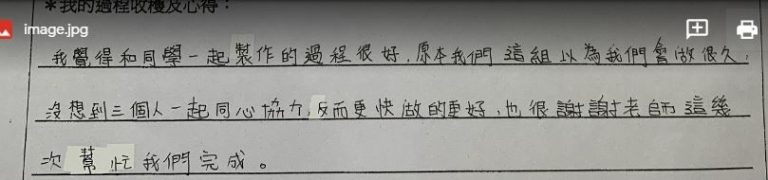 *我的過程收穫及心得：
image.jpg
我覺得和同學一起製作的過程很好，原本我們這組以為我們會做很久，
沒想到三個人一起同心協力，反而更快做的更好，也很謝謝老師這幾
次幫忙我們完成。